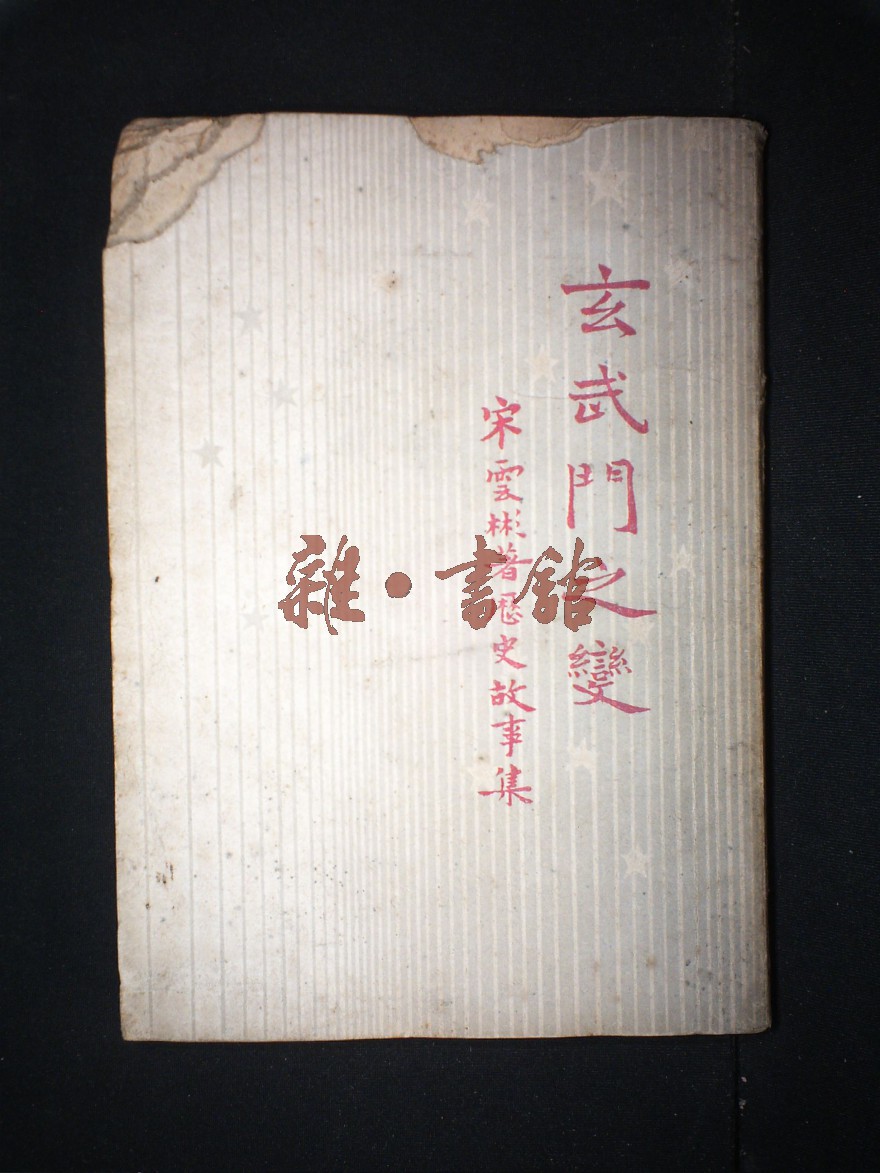 玄武門之變
宋雲彬著歷史故事集
雜·書館